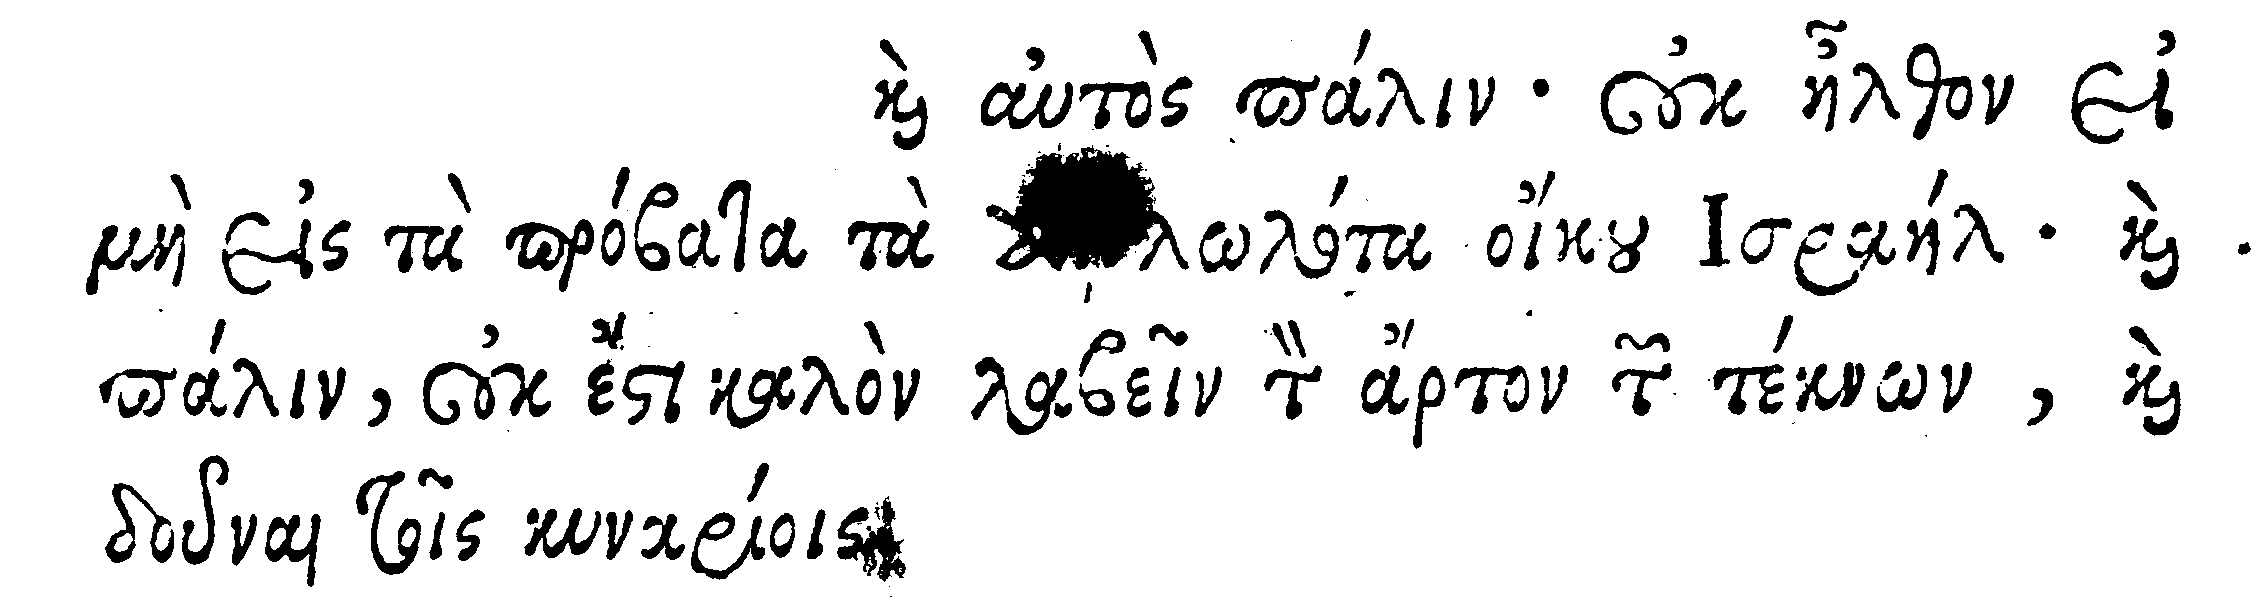 καὶ αὐτὸς πάλιν· οὐκ ἦλθον εἰ
μὴ εἰς τὰ πρόβατα τὰ οἴκου Ισραήλ· καὶ
πάλιν, οὐκ ἔστι καλὸν λαβεῖν τὸν ἄρτον τῶν τέκνων, καὶ
δοῦναι τοῖς κυναρίοις